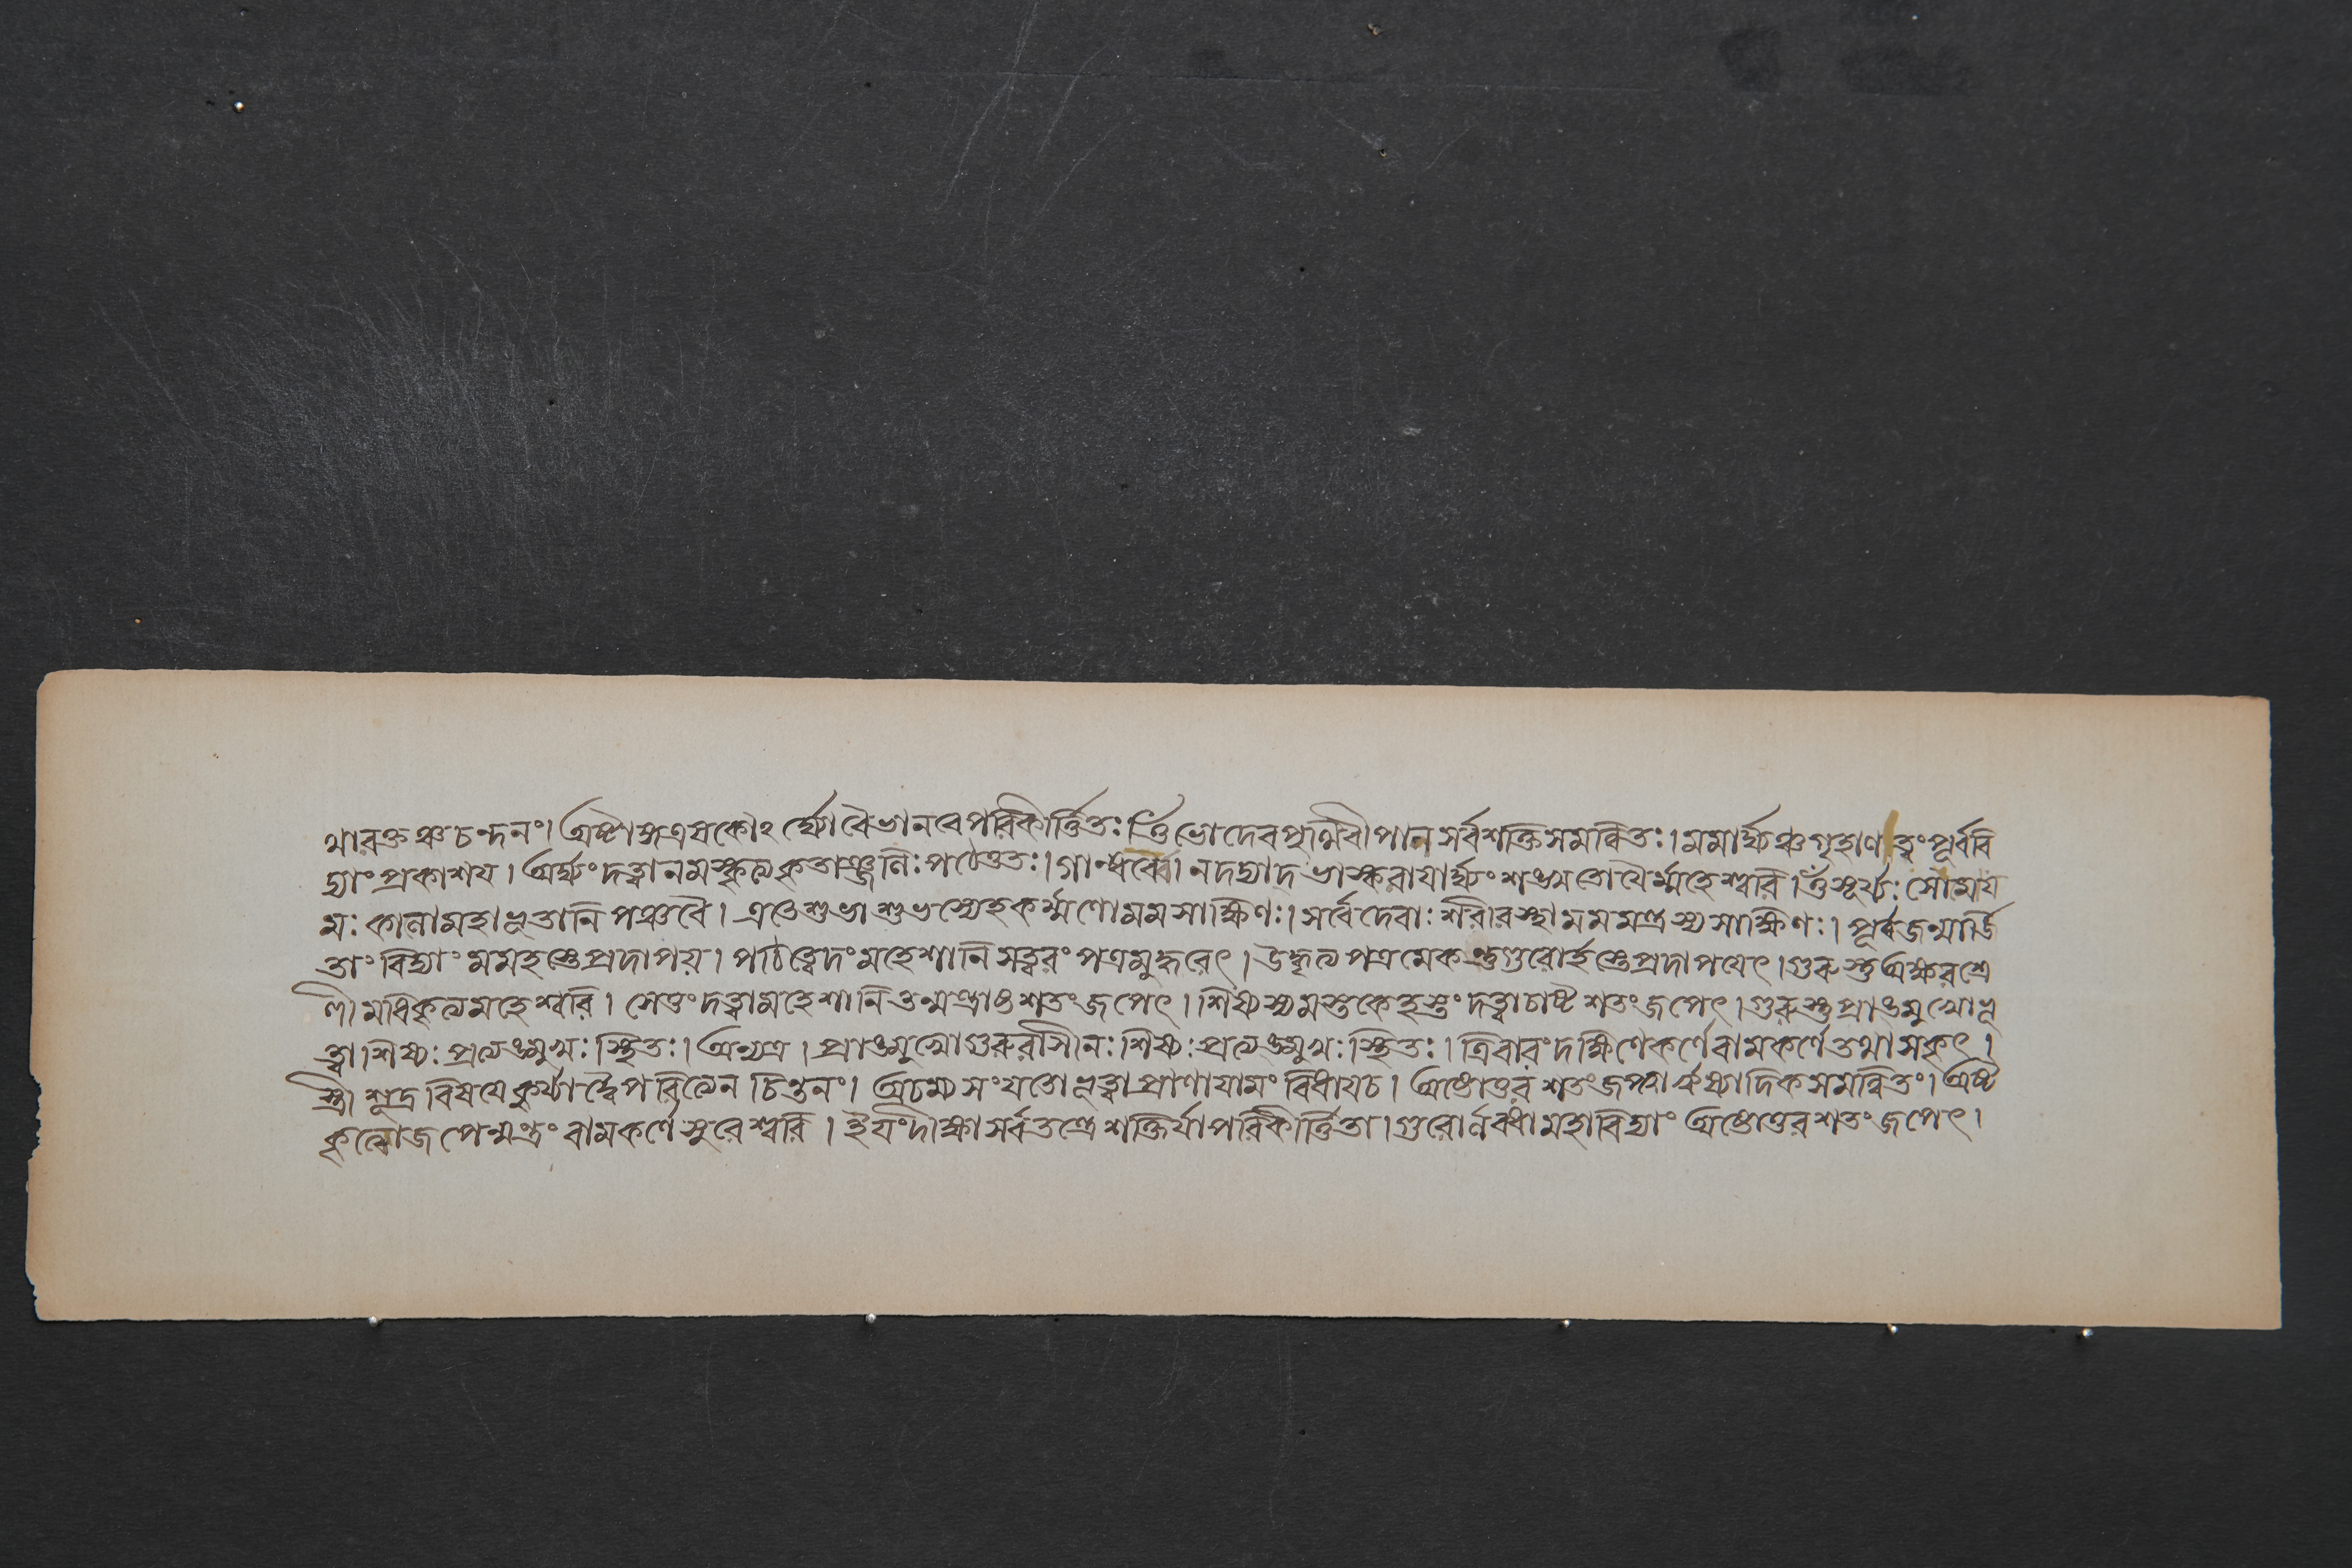 থারক্ত ঞ্চ চন্দনং। অষ্টাঙ্গ এষকৌঽর্ঘ্যো বৈভানবে পরিকীর্ত্তিতঃ ওঁ ভো দেব পৃথিবীপাল সর্বশক্তিসমন্বিতঃ। মমার্ঘ্যঞ্চ গৃহাণ ত্বং পূর্ববি
দ্যাং প্রকাশয। অর্ঘ্যং দত্ত্বা নমস্কৃত্য কৃতাঞ্জলিঃ পঠেত্ততঃ। গান্ধর্ব্বেণ ন দদ্যাদ ভাস্করাযার্ঘ্যং শঙ্খমতোযৈর্ম্মহেশ্বরি। ওঁ সূর্য্যঃ সোমোয
মঃ কালো মহাভূতানি পঞ্চ বৈ। এতে শুভাশুভস্যেহ কর্ম্মণো মম সাক্ষিণঃ। সর্বে দেবাঃ শরীরস্থা মম মন্ত্রস্য সাক্ষিণঃ। পূর্বজন্মার্জি
তাং বিদ্যাং মম হস্তে প্রদাপয়। পঠিত্বেদং মহেশানি সত্বরং পত্রমুদ্ধরেৎ। উদ্ধৃত্য পত্রমেকন্তু গুরোর্হস্তে প্রদাপযেৎ। গুরুস্তু অক্ষরশ্রে
ণীমধিকৃত্য মহেশ্বরি। সেতুং দত্ত্বা মহেশানি তন্মন্ত্রাষ্ট শতং জপেৎ। শিষ্যস্য মস্তকে হস্তং দত্ত্বা চাষ্ট শতং জপেৎ। গুরুস্তু প্রাঙমুখো ভূ
ত্বা। শিষ্যঃ প্রত্যঙমুখঃ স্থিতঃ। অন্যত্র। প্রাঙমুখো গুরুরাসীনঃ শিষ্যঃ প্রত্যঙমুখঃ স্থিতঃ। ত্রিবারং দক্ষিণে কর্ণে বামকর্ণে তথা সকৃৎ।
স্ত্রী শূদ্র বিষযে কুর্য্যাদ্বৈপরিত্যেন চিন্তনং। অচম্য সংযতো ভূত্বা প্রাণাযামং বিধায চ। অষ্টোত্তর শতং জপ্ত্বা ঋষ্যাদিক সমন্বিতং। অষ্ট
কৃত্বো জপেন্মন্ত্রং বামকর্ণে সুরেশ্বরি। ইযং দীক্ষা সর্বতন্ত্রে শক্তির্যা পরিকীর্ত্তিতা। গুরোর্লব্ধা মহাবিদ্যাং অষ্টোত্তর শতং জপেৎ।